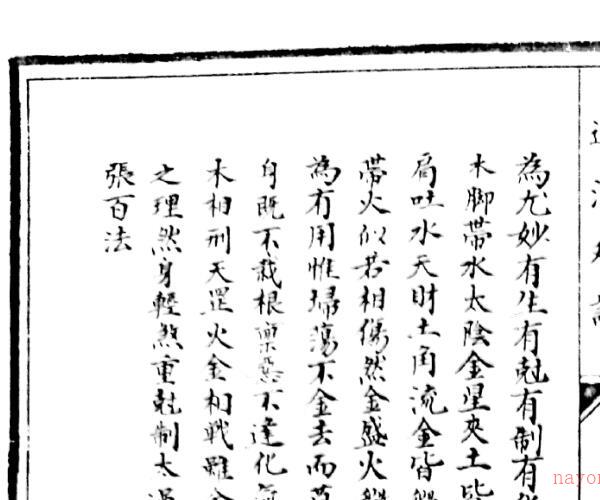 為尤妙有生有剋有制有
木脚帶水太陰金星夾土皆
肩吐水天財土角流金皆
帶火似若相傷然金盛火
為有用惟掃蕩不金去而
自既不栽根藥惡不達化
木相刑天罡火金相戰雖
之理然身輕煞重尅制太過
張百法
nayo